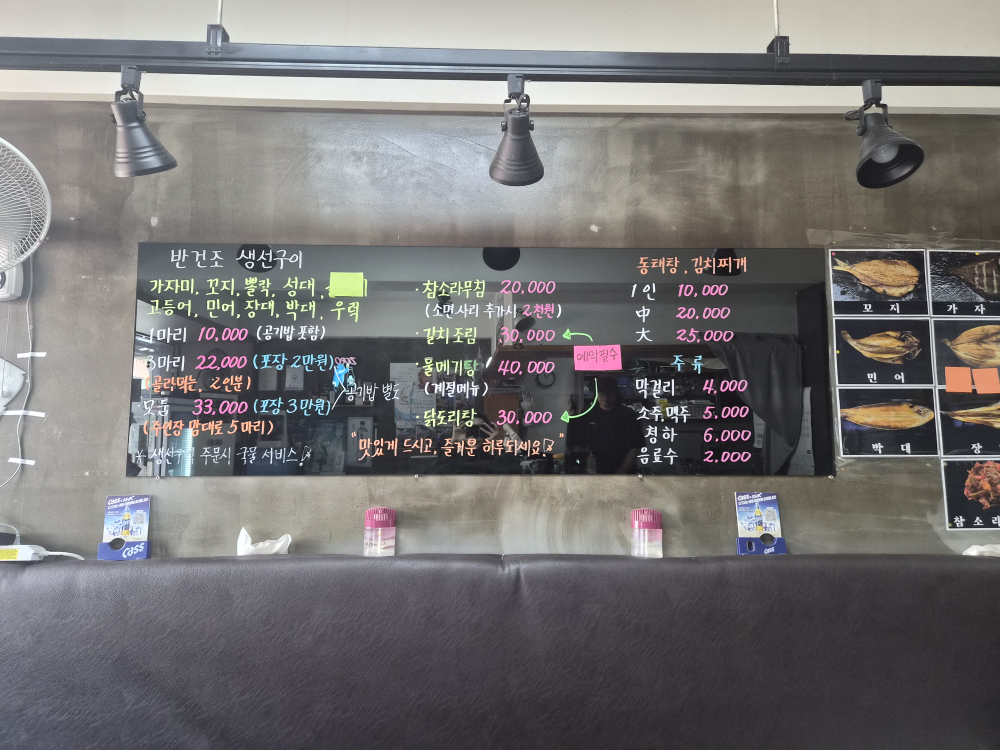 반건조 생선구이
가자미, 꼬지, 뽈락, 성대,
고등어, 민어, 장대, 박대, 우럭
1마리 10,000 (공기밥 포함)
3마리 22,000 (포장 2만원)
(골라먹는, 2인분)
공기밥 별도
·모둠 33,000 (포장 3만원)
(주선장 맘대로 5마리)
※ 생선구이 주문시 국물 서비스!
·참소라무침 20,000
(소면사리 추가시 2천원)
·갈치조림 30,000
·물메기탕 40,000
(계절메뉴)
·닭도리탕 30,000
예약필수
"맛있게 드시고, 즐거운 하루되세요"
동태탕, 김치찌개
1인 10,000
中 20,000
大 25,000
주류
막걸리 4,000
소주,맥주 5,000
청하 6,000
음료수 2,000
꼬지
가자
민어
박대
장
참소라
Cass
Cass